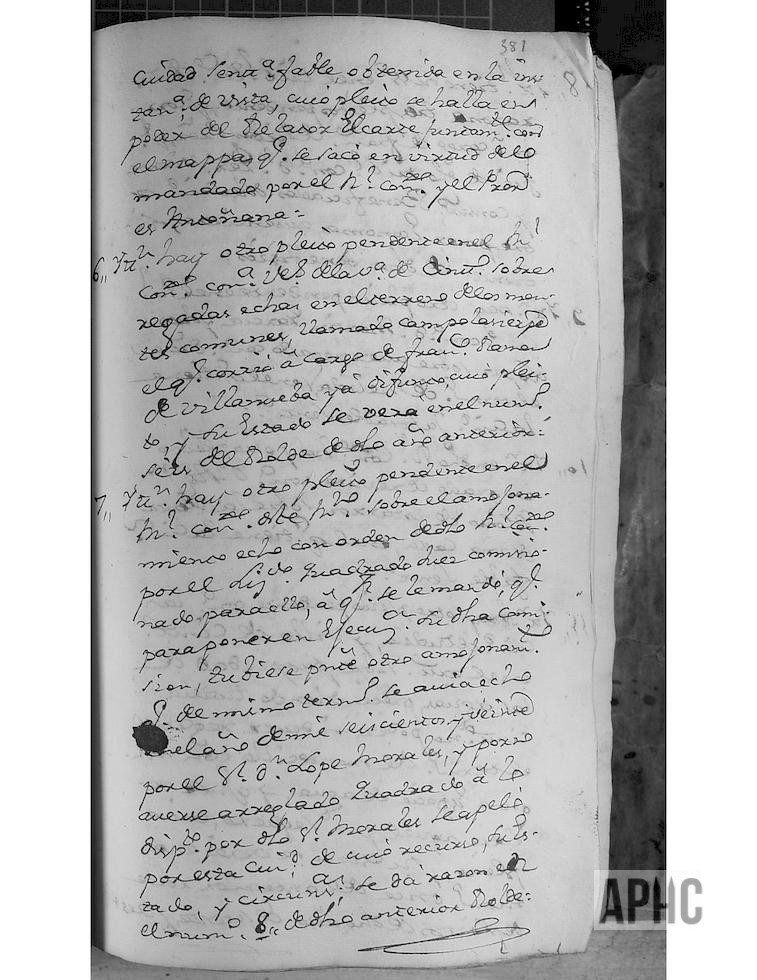 381
8
Ciudad sentª. fable, obtenida en la ins-
tanª. de vista, cuio pleito se halla en
poder del Relator Elcarte juntamte. con
el mappa qe. se sacó en virtud de lo
mandado por el Rl. Conzo. y el Proor.
es Antoñana=
6,, Ytn. hay otro pleito pendente en el Rl.
Conzo. conª. Vs. de la vª. de Cintl. sobre
regadas echas en el terreno de los mon-
tes comunes, llamado campo
el qe. corrió à cargo de Franco. Ramon
de Villanueba ya difunto, cuio plei-
to, y su Estado se vera en el numo.
seis del Rolde de dho año anterior=
7,, Ytn. hay otro pleito pendente en el
Rl. Conzo. de este Rno. sobre el amojona-
miento echo con orden de dho Rl. Conzo.
por el Lizdo. Quadrado Juez comisio-
nado para ello, à qn. se le mandó, qe.
para poner en Ejecuzn. su dha Comi-
sion, tubiese prite otro amojonamto.
qe. de mimo termo. se avia echo
en el año de mil seiscientos y veinte
por el Sr. Dn. Lope Morales, y por no
averse arreglado Quadrado à lo
dispto. por dho Sr. Morales se apeló
por esta Ciud. de cuio recurso, su es-
tado, y circunsas. se dà razon en
el numo. 8,, de dho anterior Rolde=
APHC